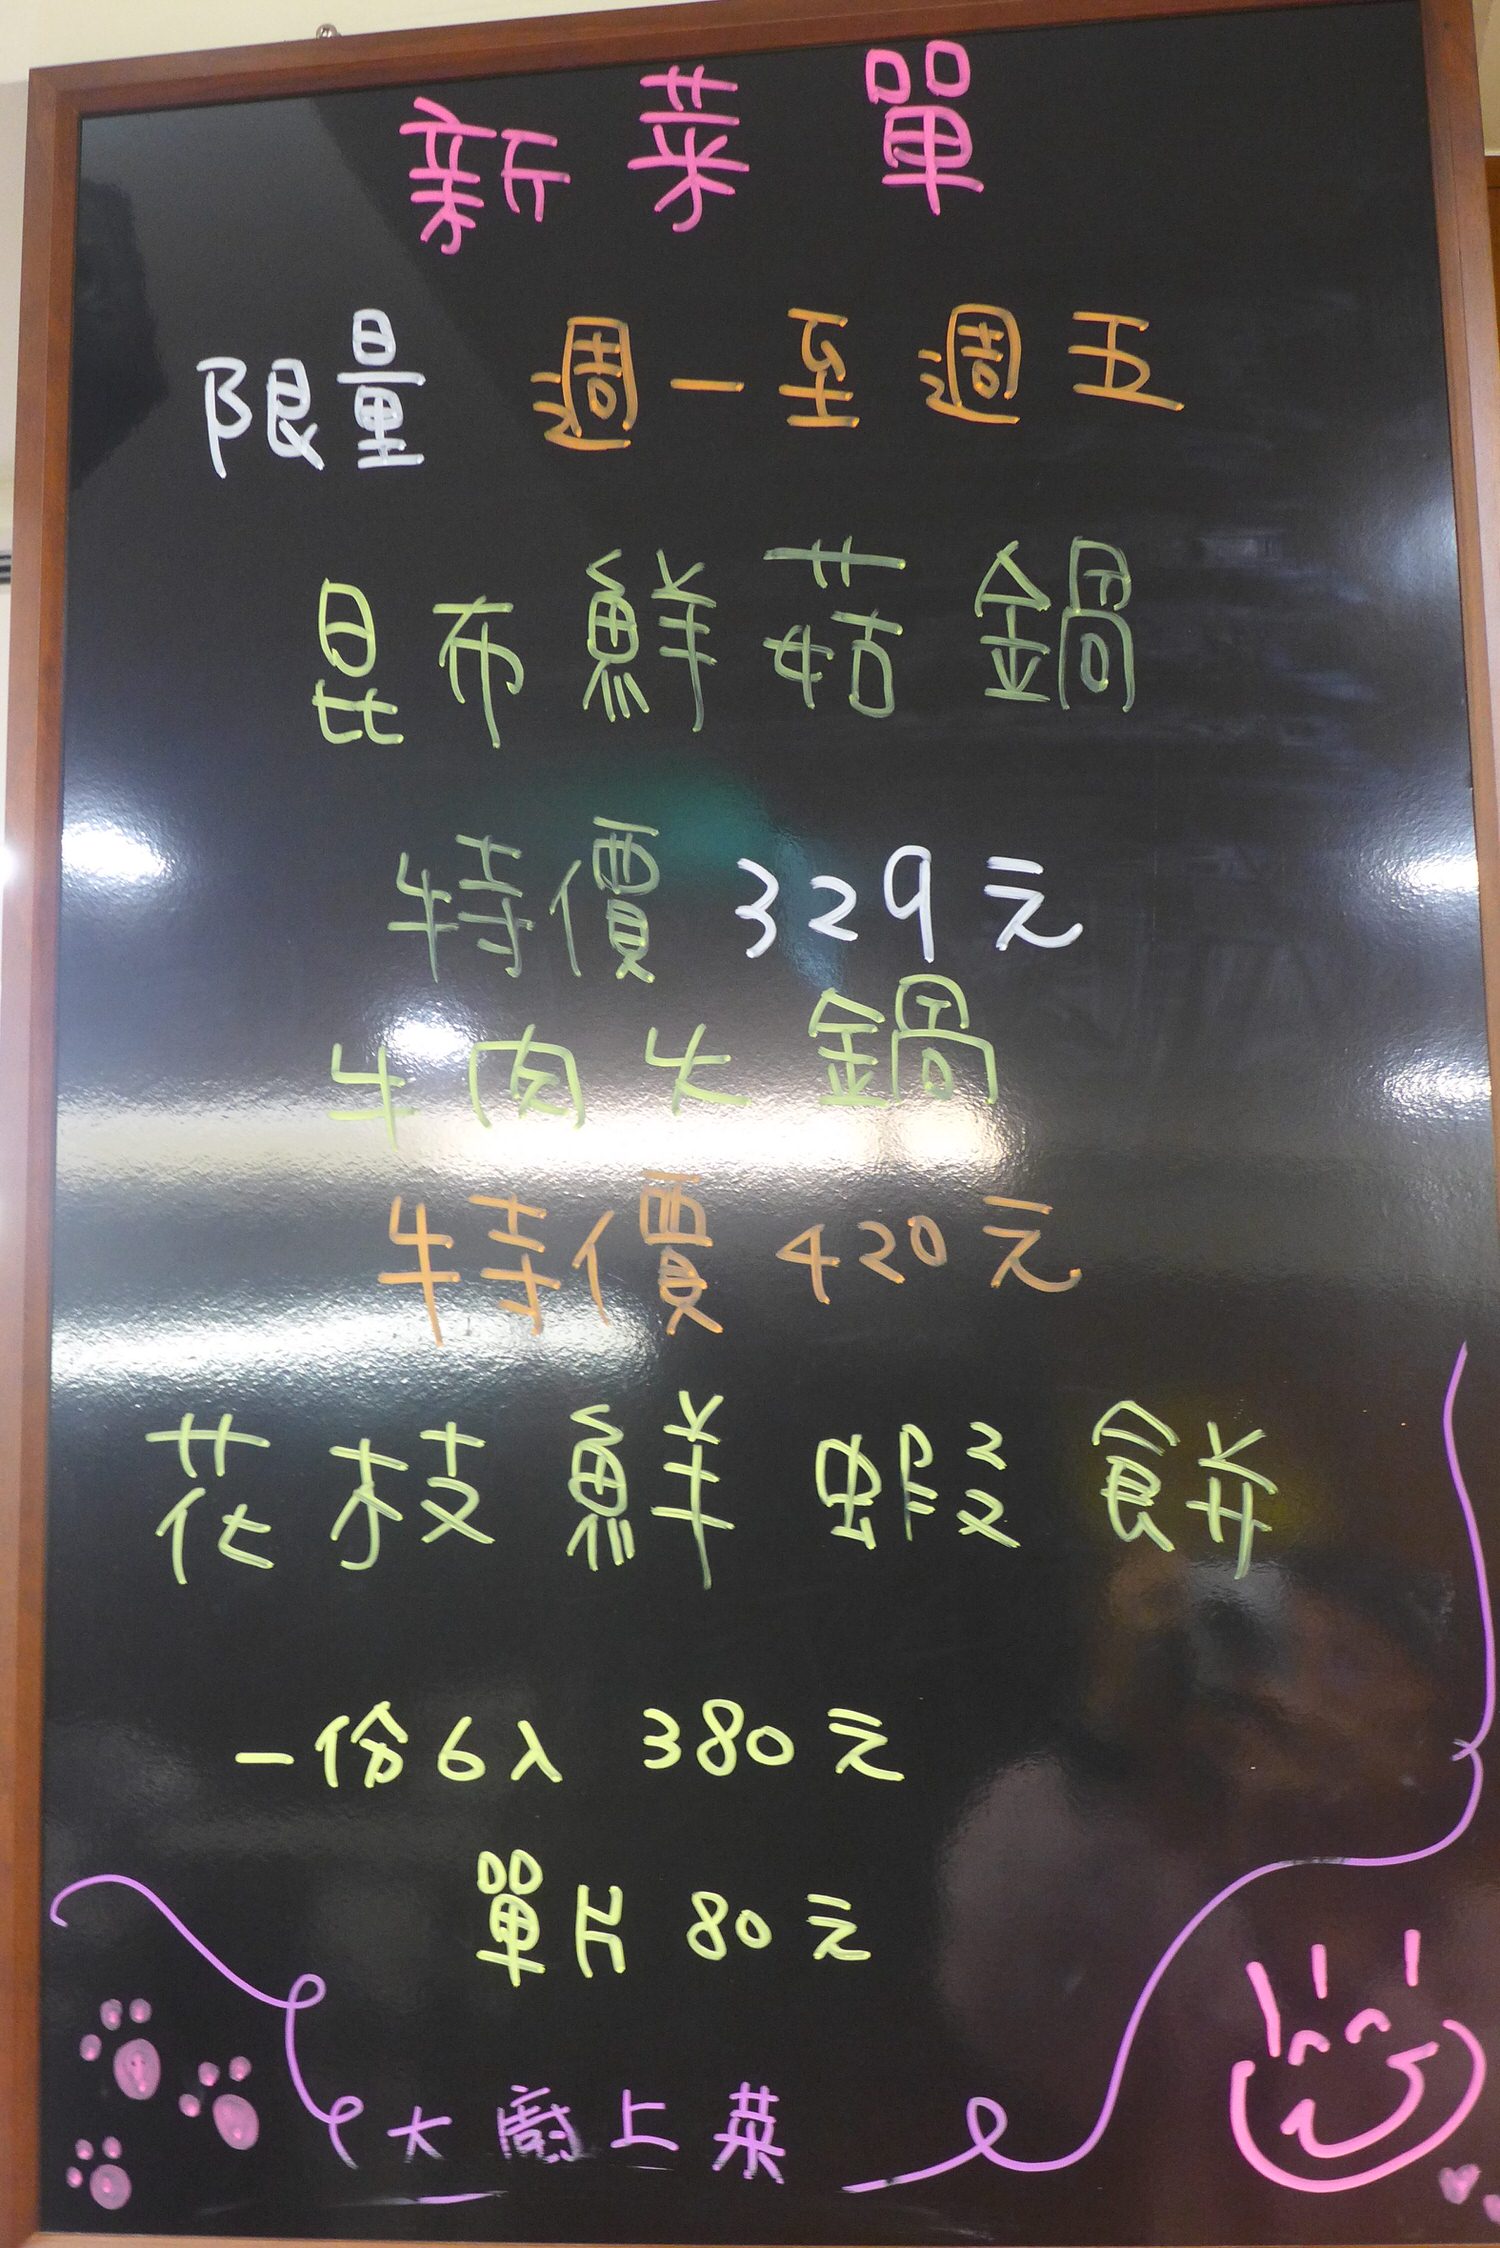 新菜單
限量 週一至週五
昆布鮮菇鍋
特價 329元
牛肉火鍋
特價 420元
花枝鮮蝦餅
一份6入 380元
單片 80元
大廚上菜